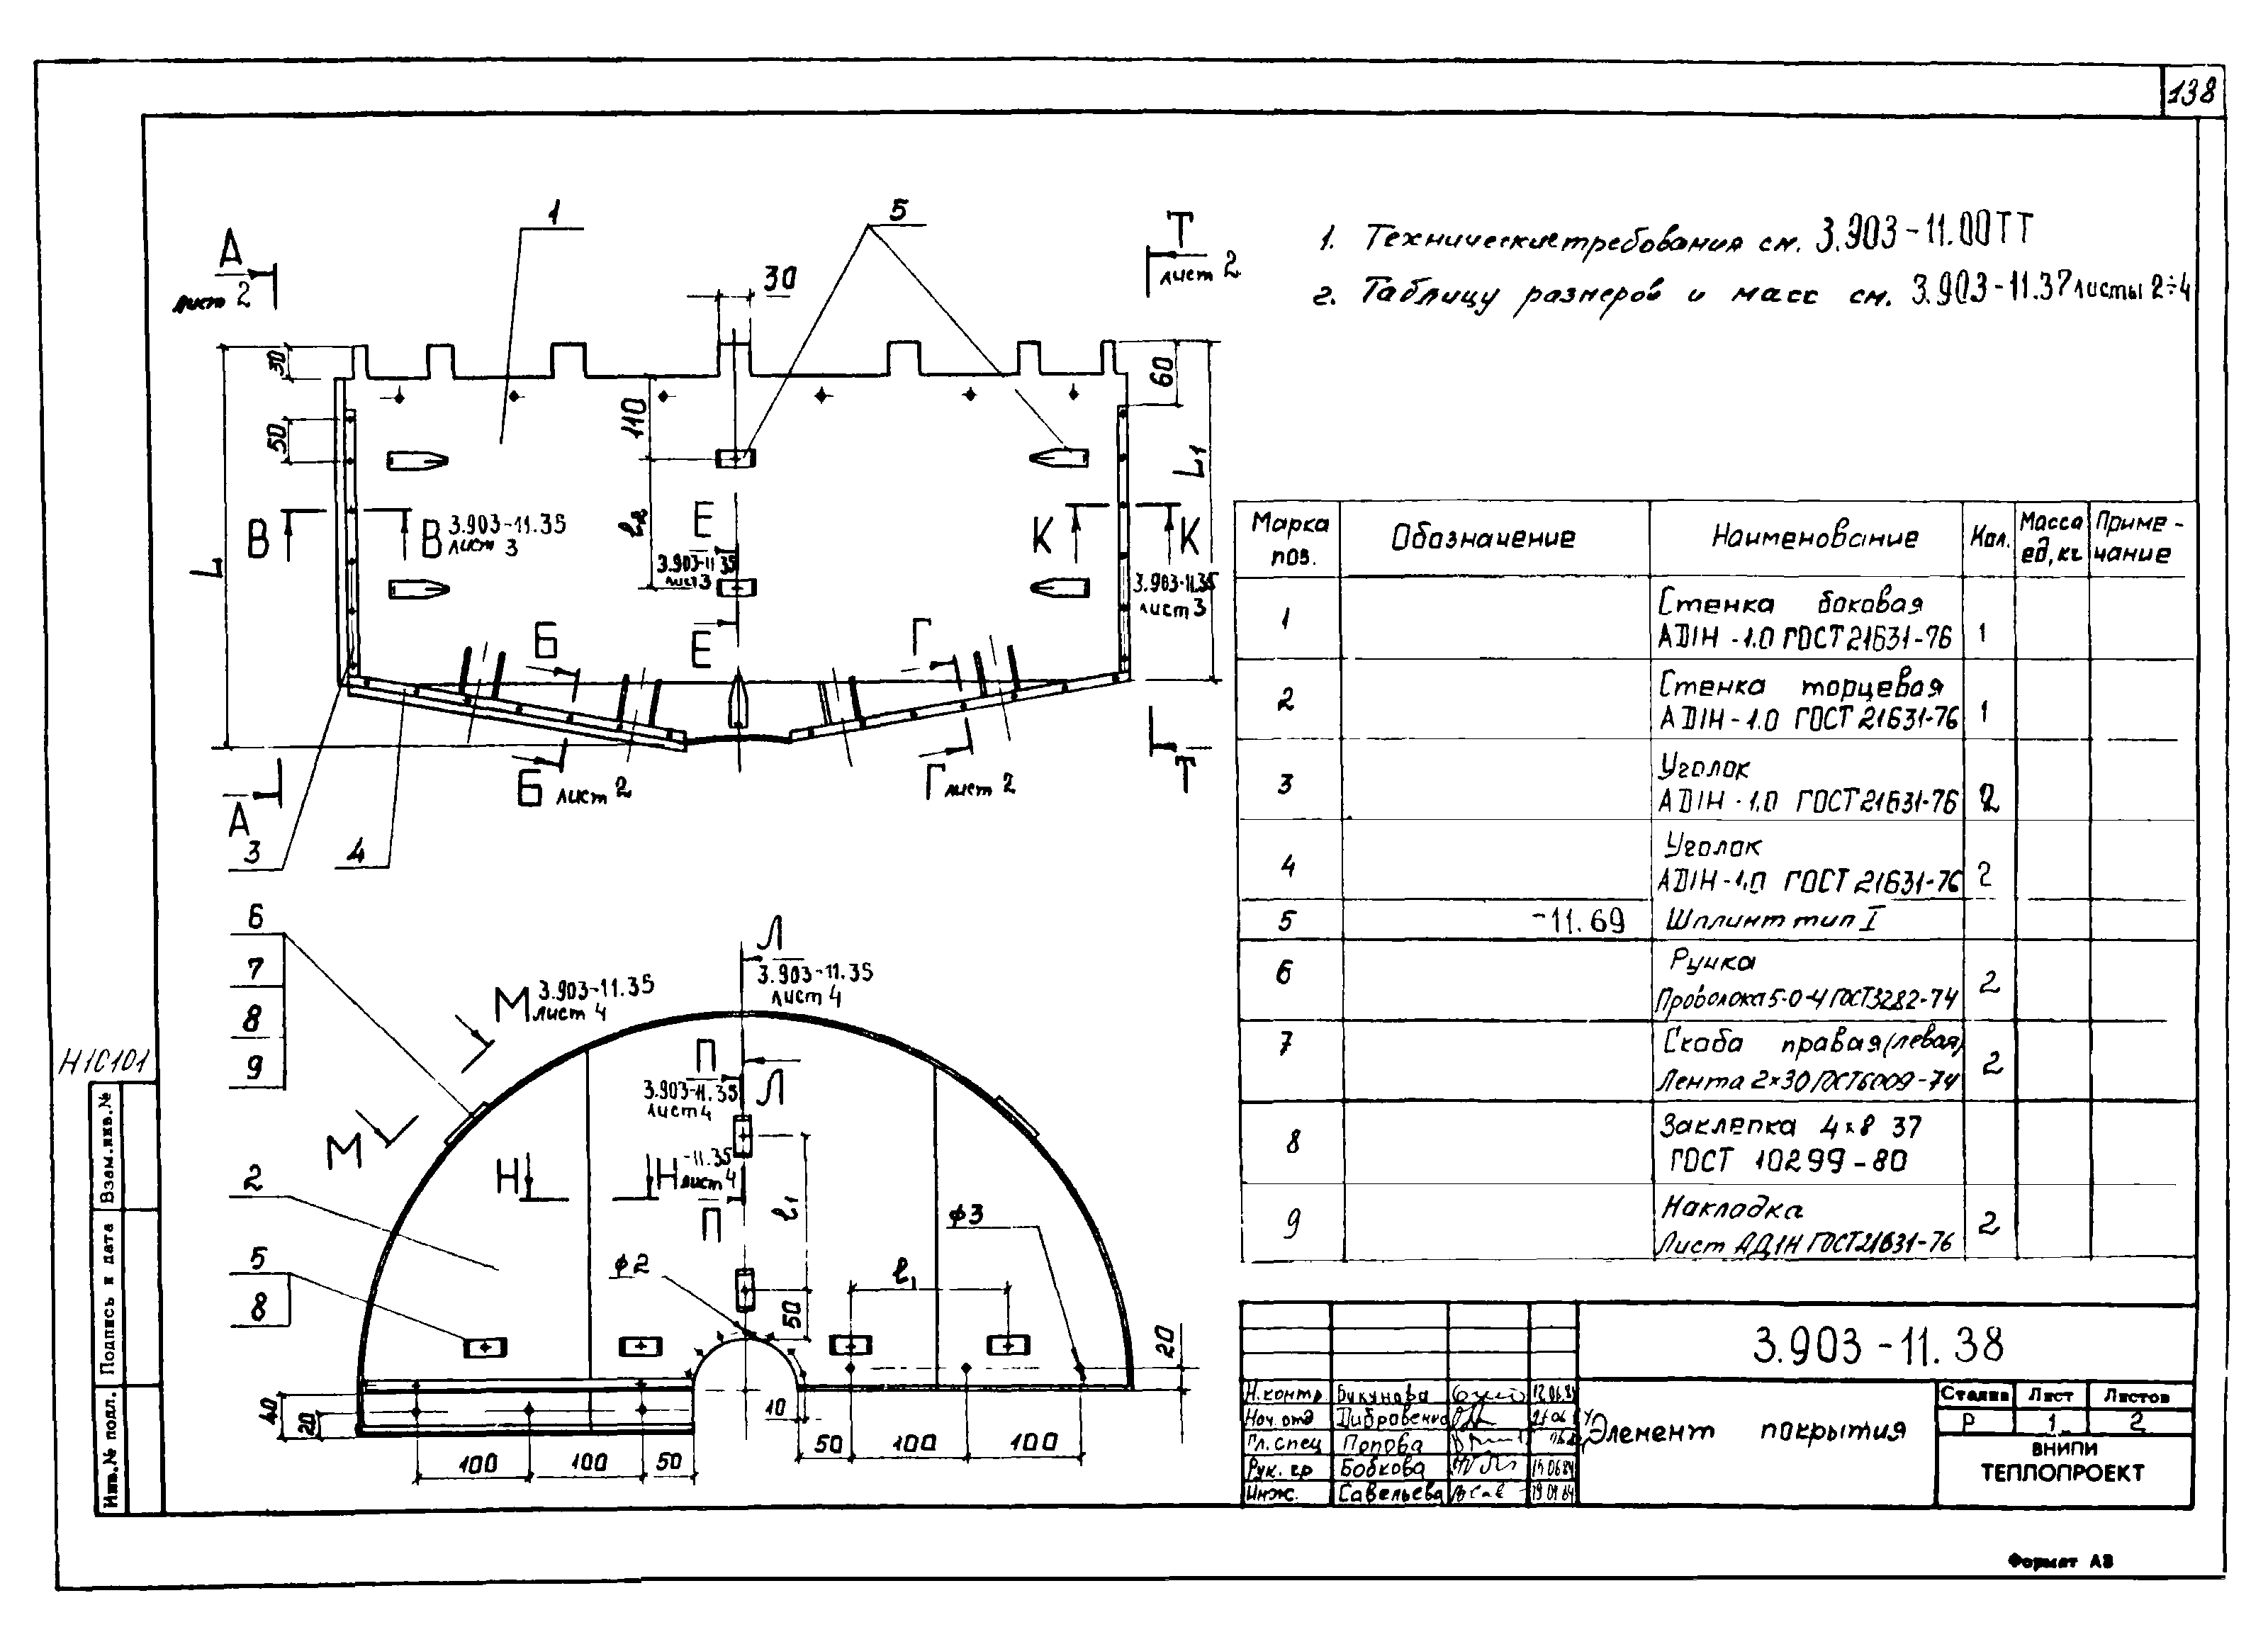 138
1. Технические требования см. 3.903-11.00ТТ
2. Таблицу размеров и масс см. 3.903-11.37 листы 2÷4
А
лист 2
1
5
Т
лист 2
30
30
50
110
60
L
L1
l2
В
В 3.903-11.35
лист 3
Е
3.903-11.35
лист 3
Е
К
К
3.903-11.35
лист 3
Б
Г
Б лист 2
Г лист 2
Т
А
3
4
6
7
8
9
М 3.903-11.35
лист 4
М
Л
3.903-11.35
лист 4
П
3.903-11.35
лист 4
Л
Н
Н -11.35
лист 4
П
l1
ϕ3
2
5
8
ϕ2
50
l1
20
40
20
10
100
100
50
50
100
100
Марка поз.
Обозначение
Наименование
Кол.
Масса ед, кг
Примечание
1
Стенка боковая
АД1Н-1.0 ГОСТ 21631-76
1
2
Стенка торцевая
АД1Н-1.0 ГОСТ 21631-76
1
3
Уголок
АД1Н-1.0 ГОСТ 21631-76
2
4
Уголок
АД1Н-1.0 ГОСТ 21631-76
2
5
-11.69
Шплинт тип I
6
Ручка
Проволока 5-0-4 ГОСТ 3282-74
2
7
Скоба правая (левая)
Лента 2×30 ГОСТ 6009-74
2
8
Заклепка 4×8 37
ГОСТ 10299-80
9
Накладка
Лист АД1Н ГОСТ 21631-76
2
3.903-11.38
Н.контр Викунова
Нач.отд Дибровенко
Гл.спец Попова
Рук. гр Бобкова
Инж. Савельева
Элемент покрытия
Стадия Лист Листов
Р 1 2
ВНИПИ
ТЕПЛОПРОЕКТ
Н1С101
Взам.инв.№
Подпись и дата
Инв.№ подл.
Формат А3